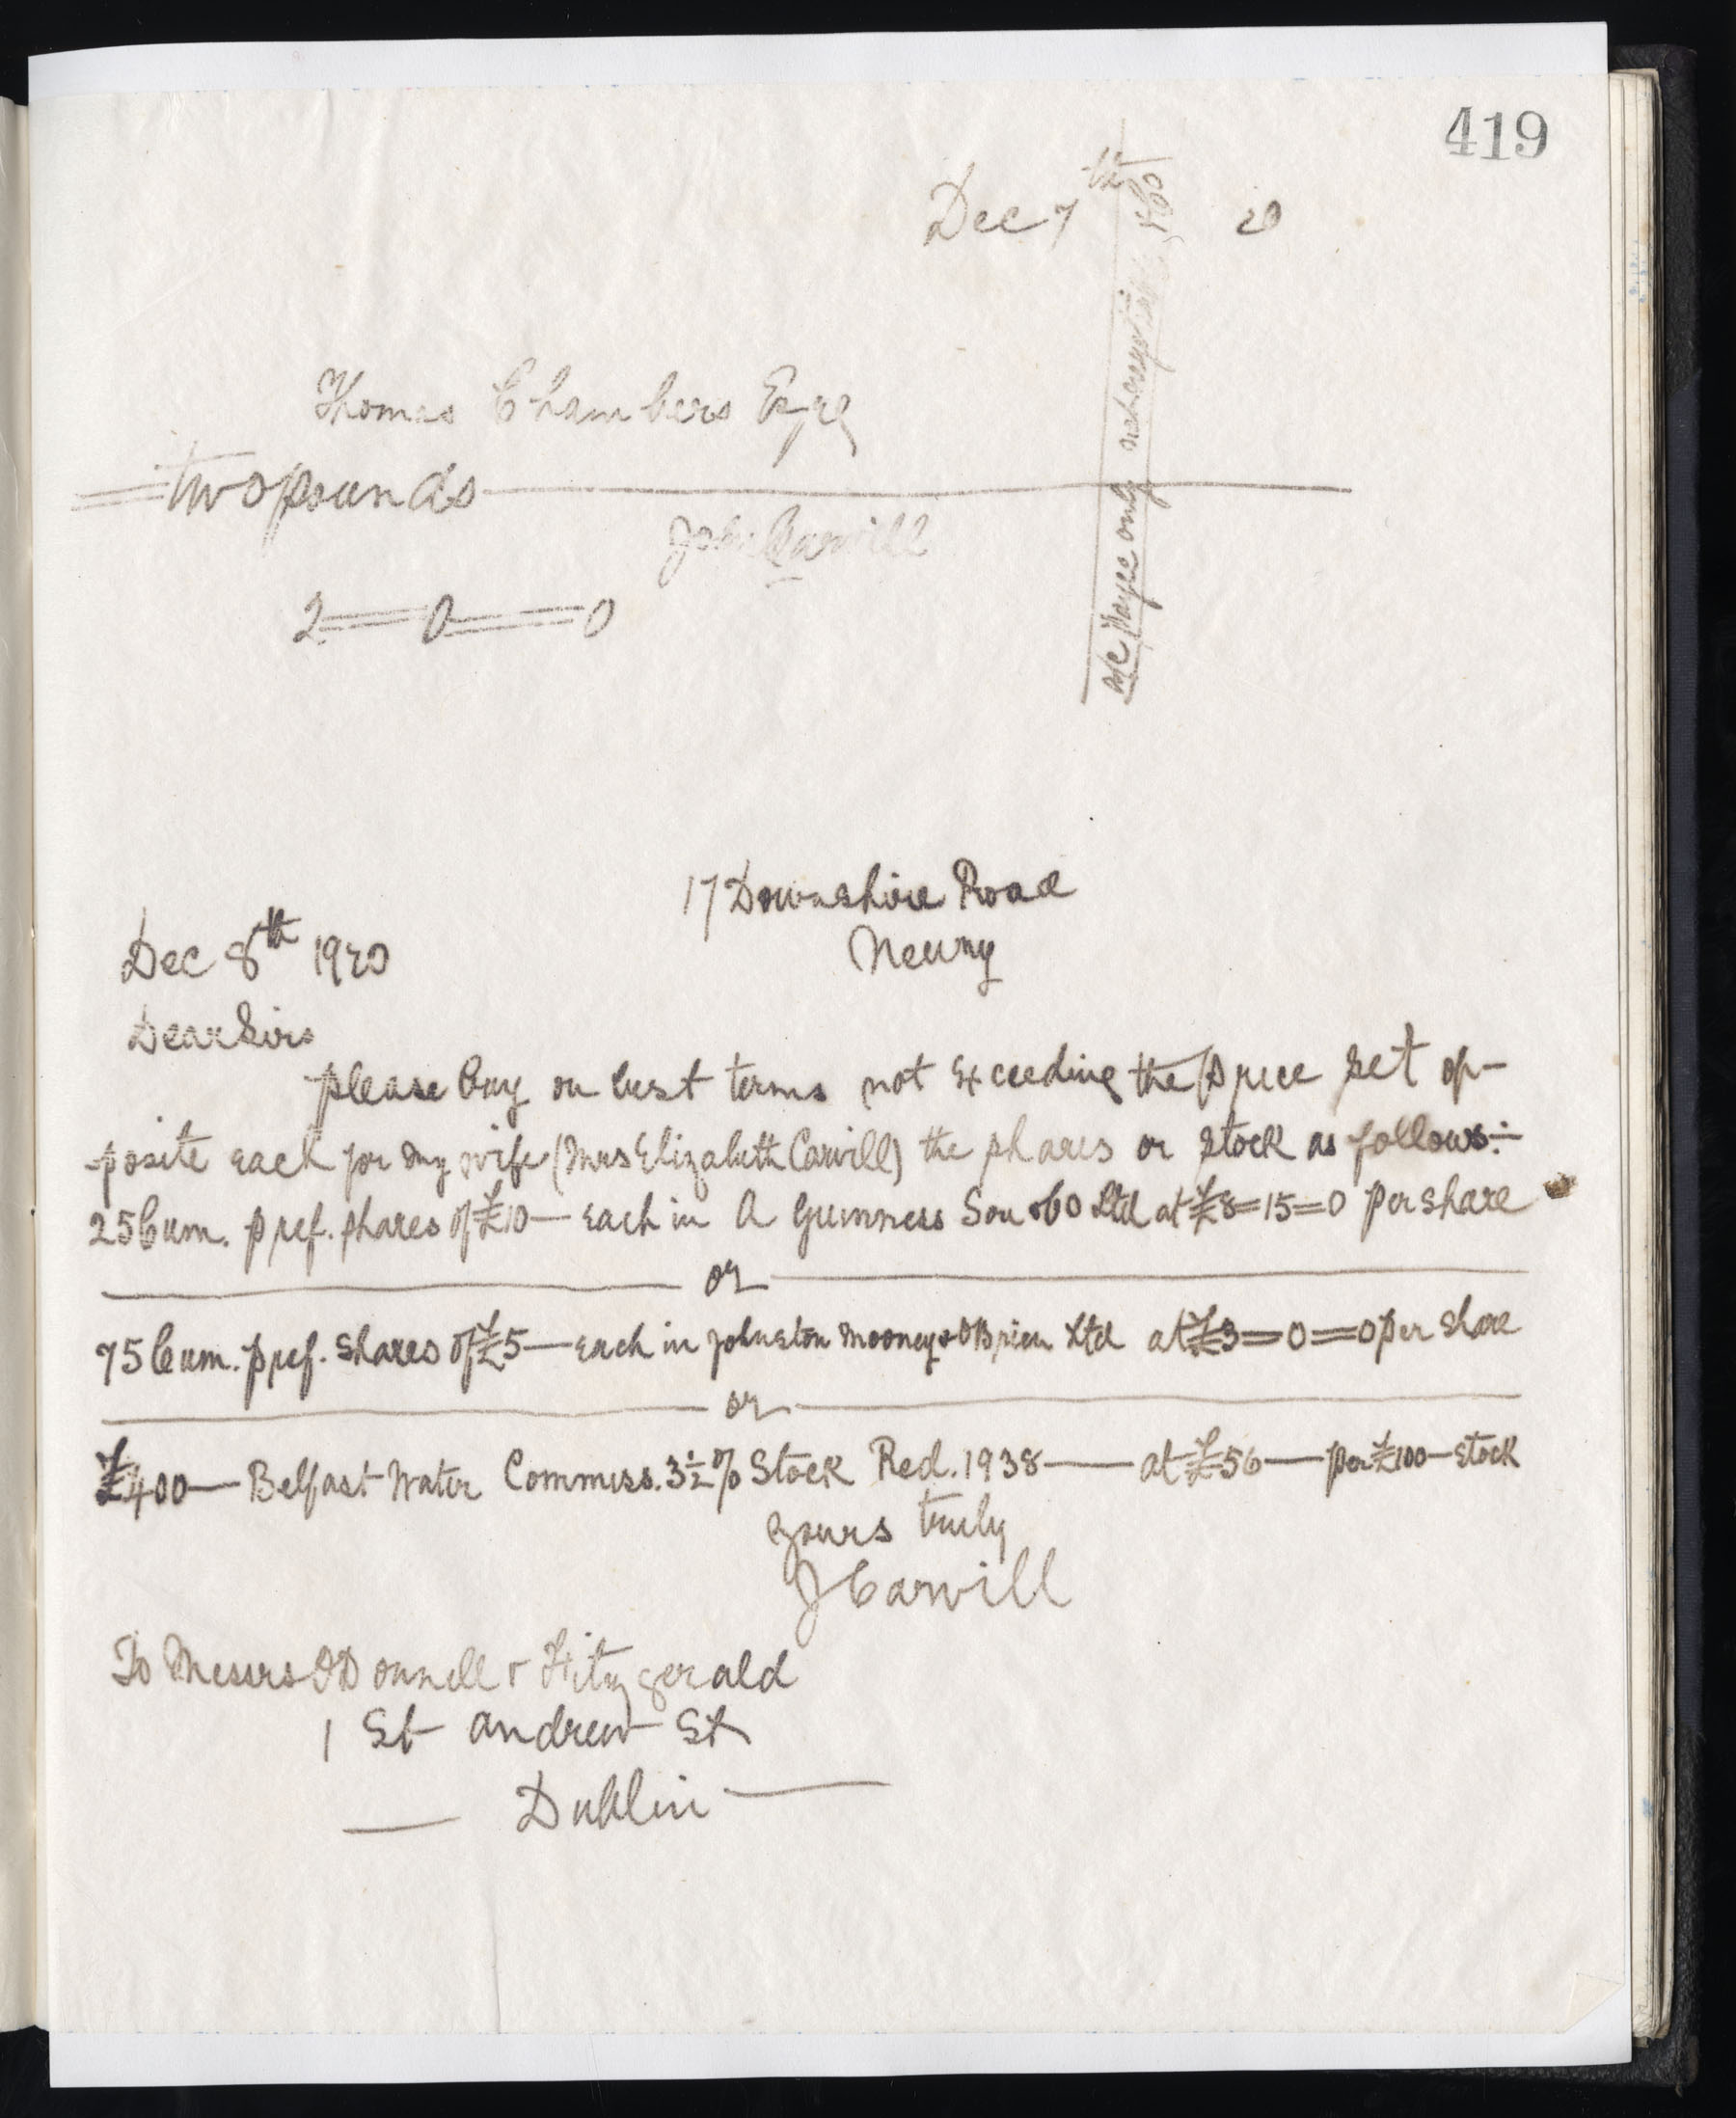 419
Dec 7th 20
Thomas Chambers Esqre
two pounds
John Carvill
2=0=0
a/c payee only not negotiable & Co
17 Downshire Road
Newry
Dec 8th 1920
Dear Sirs
please buy on best terms not exceeding the price set op-
posite each for my wife (Mrs Elizabeth Carvill) the shares or stock as follows:-
25 Cum. pref. shares of £10— each in A Guinness Son & Co Ltd at £8=15=0 per share
or
75 Cum. pref. shares of £5— each in Johnston Mooney & OBrien Ltd at £3=0=0 per share
or
£400— Belfast Water Commiss. 3½% Stock Red. 1938— at £56— per £100— stock
yours truly
J Carvill
To Messrs ODonnell & Fitzgerald
1 St Andrew St
Dublin